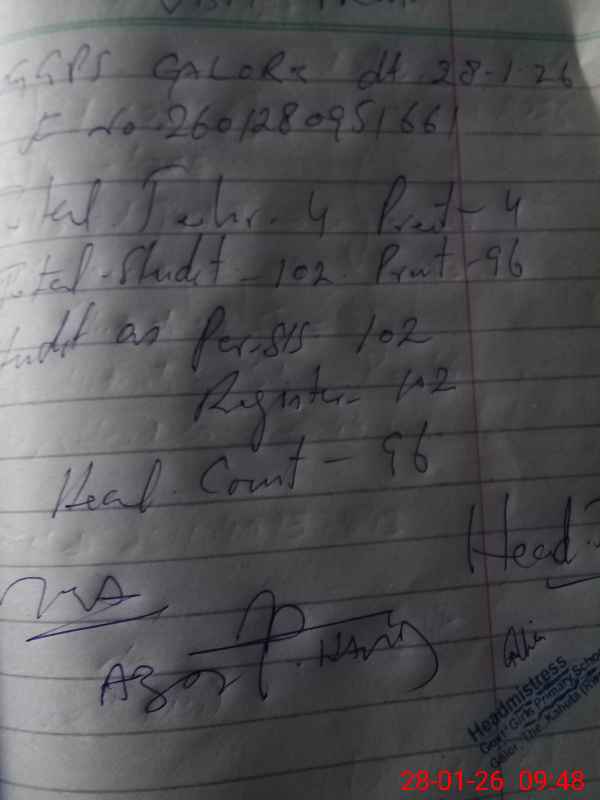 GGPS GALORE dt. 28-1-26
E No. 2601280951661
Total Teachr. 4 Presnt - 4
Total - Studet - 102. Presnt - 96
Studet as Per. SIS - 102
Register - 102
Head Count - 96
Head
MA
Headmistress
Govt Girls Primary School
Galor, The. Kahuta
28-01-26 09:48